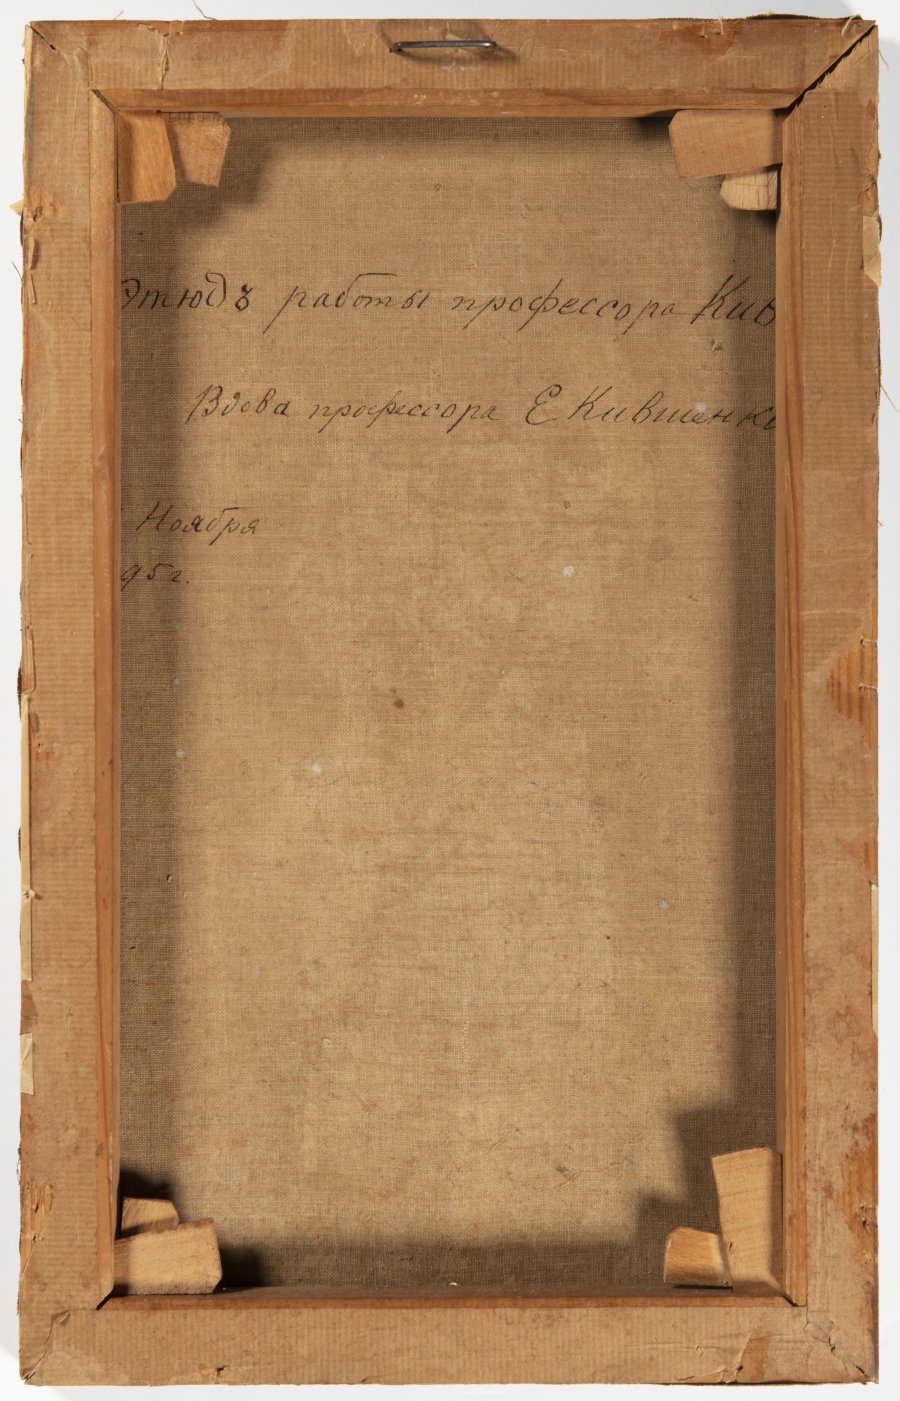 Этюдъ работы профессора Кив
Вдова профессора Е Кившенко
Ноября
95 г.